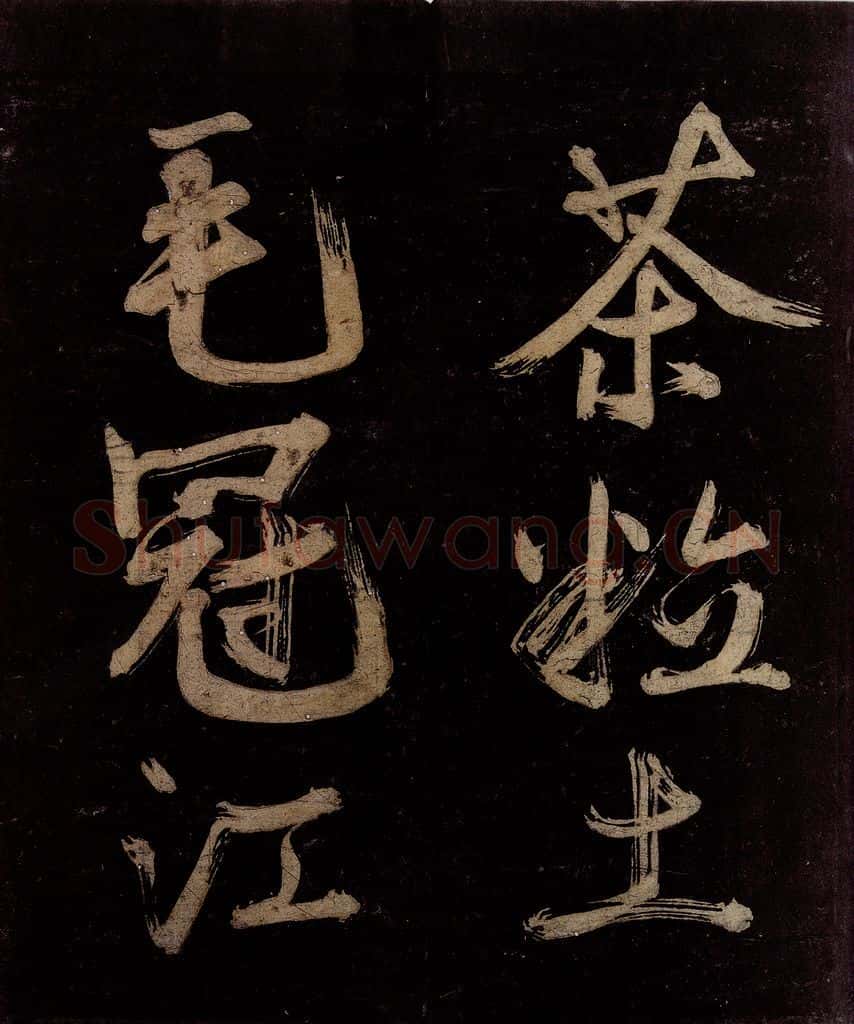 茶粒土
毛冠江
ShufaWang.CN